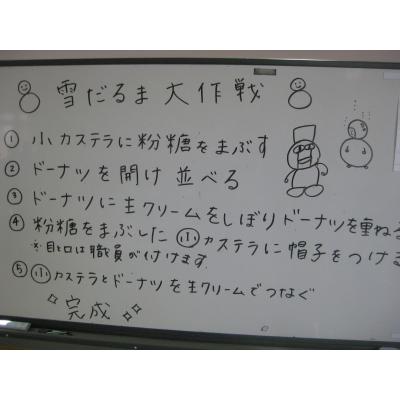 雪だるま大作戦
① 小カステラに粉糖をまぶす
② ドーナツを開け並べる
③ ドーナツに生クリームをしぼりドーナツを重ねる
④ 粉糖をまぶした小カステラに帽子をつける
※目と口は職員が付けます
⑤ 小カステラとドーナツを生クリームでつなぐ
完成